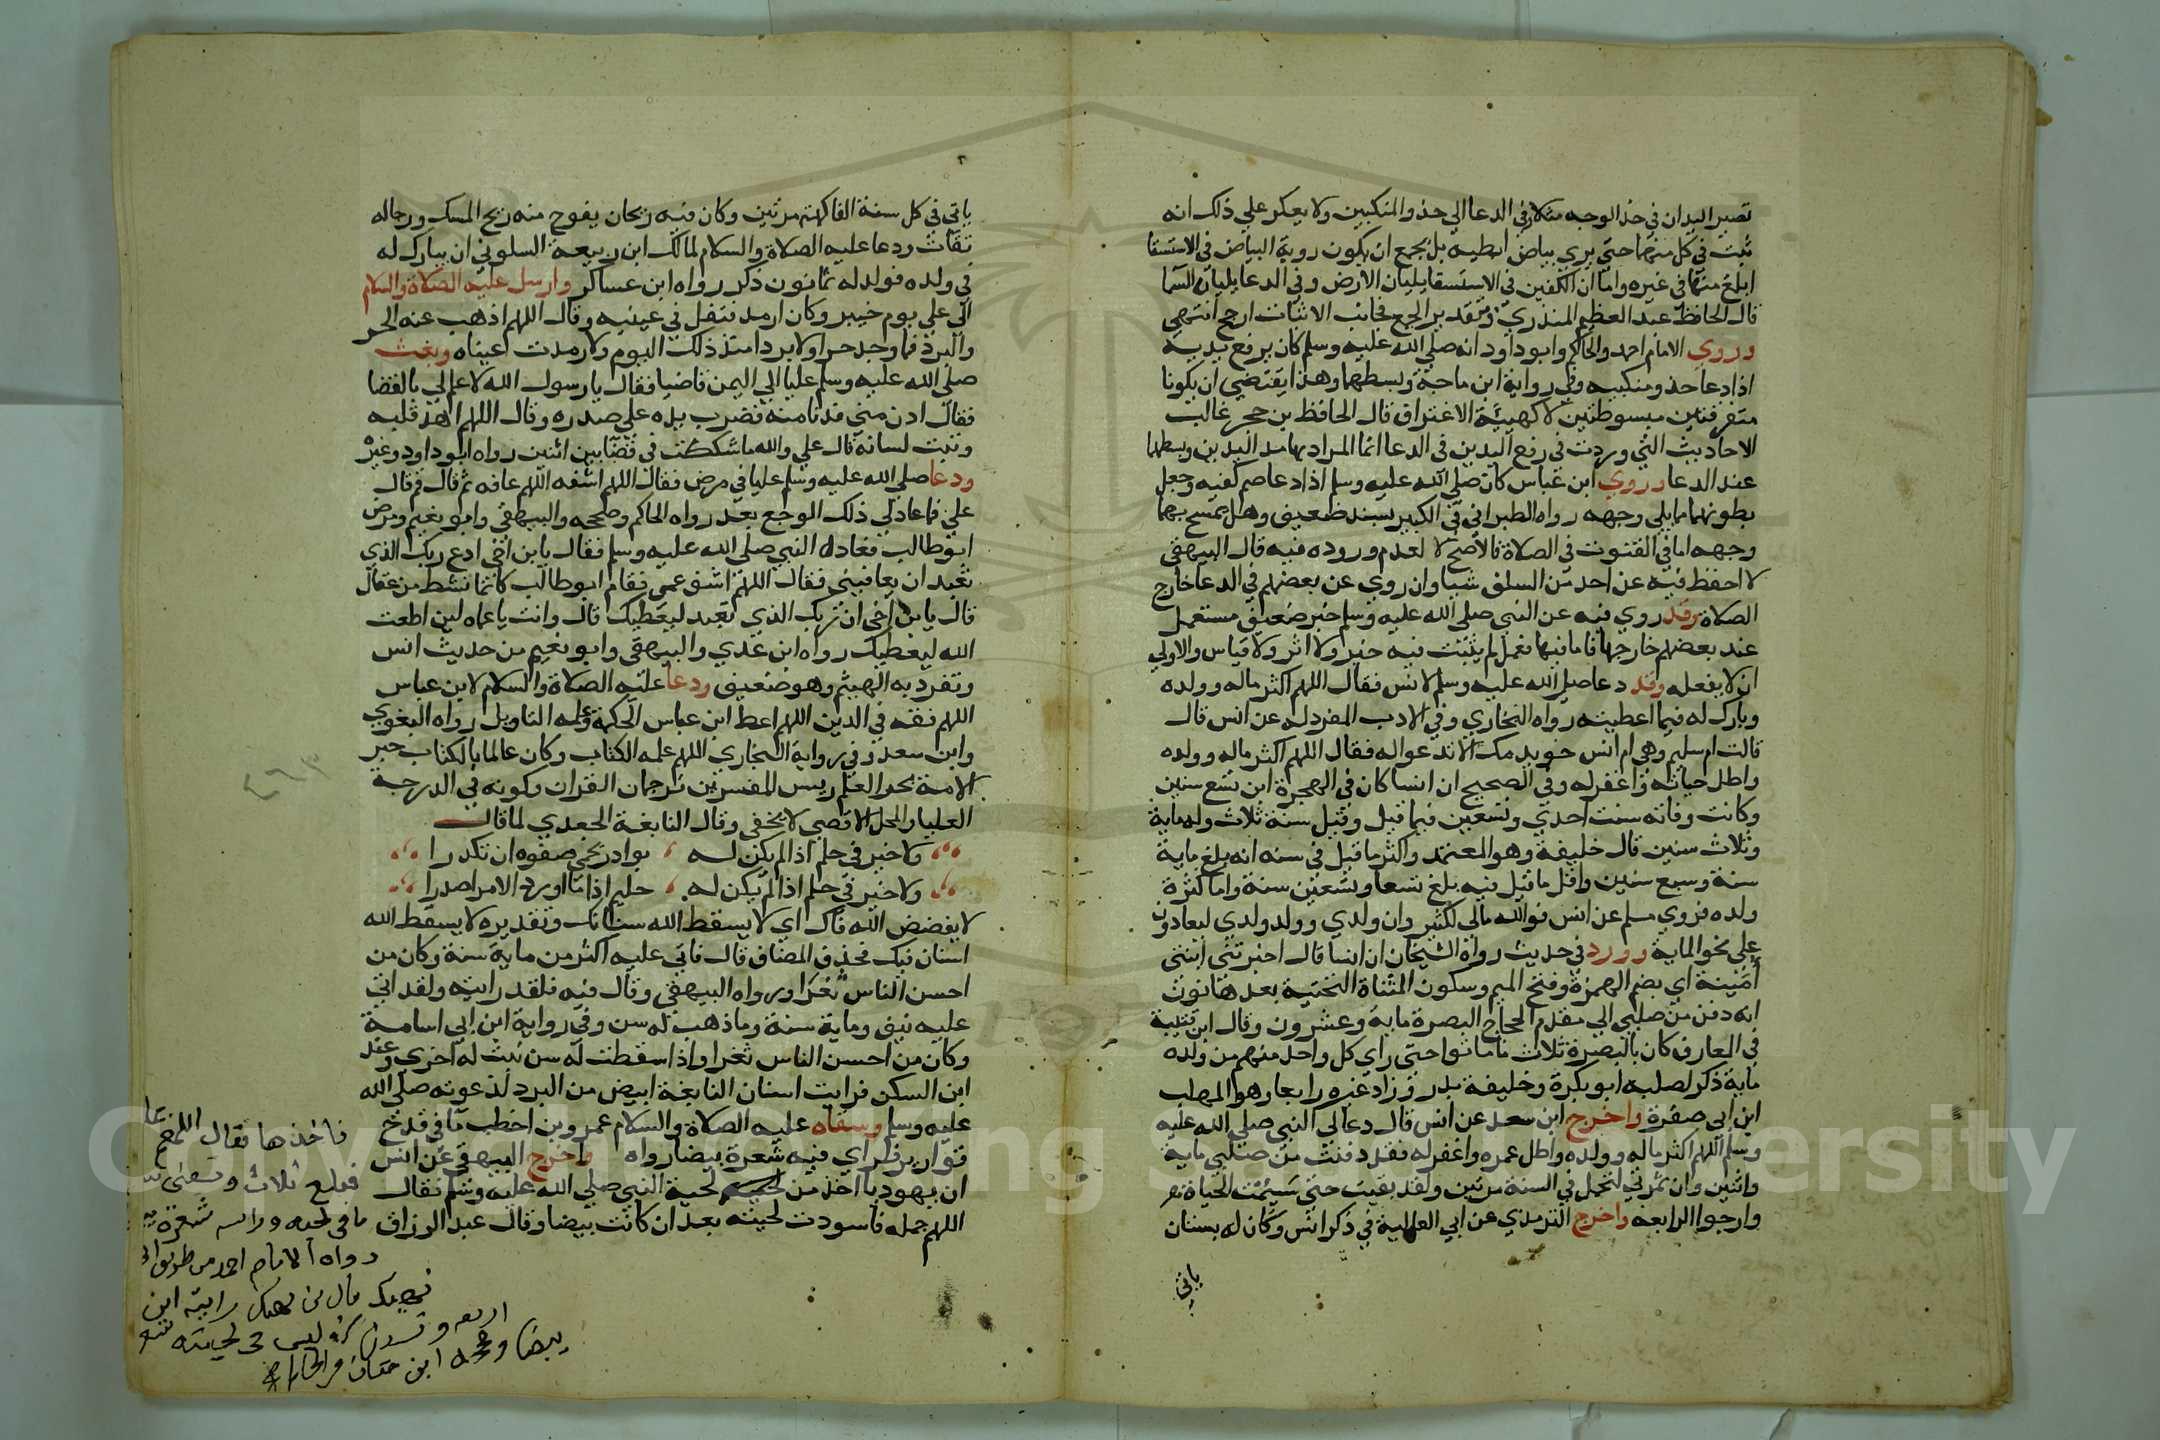 تصير اليدان في حذ الوجه مثلا وفي الدعا الي حذو المنكبين ولا يعكر علي ذلك انه
ثبت في كل منهما حتي يري بياض ابطيه بل يجمع ان يكون روية البياض في الاستسقا
ابلغ منها في غيره واما ان الكفين في الاستسقا يليان الارض وفي الدعا يليان السما
قال الحافظ عبد العظيم المنذري وبتقدير الجمع فجانب الاثبات ارجح انتهي
وروي الامام احمد والحاكم وابو داود انه صلي الله عليه وسلم كان يرفع يديه
اذا دعا حذو منكبيه وفي رواية ابن ماجة وبسطهما وهذا يقتضي ان يكونا
متفرقتين مبسوطتين لا كهيئة الاغتراق قال الحافظ بن حجر غالب
الاحاديث التي وردت في رفع اليدين في الدعا انما المراد بها مد اليدين وبسطهما
عند الدعا وروي ابن عباس كان صلي الله عليه وسلم اذا دعا ضم كفيه وجعل
بطونهما مما يلي وجهه رواه الطبراني في الكبير بسند ضعيف وهل يمسح بهما
وجهه اما في القنوت في الصلاة فالاصح لا لعدم وروده فيه قال البيهقي
لا احفظ فيه عن احد من السلف شيا وان روي عن بعضهم في الدعا خارج
الصلاة وقد روي فيه عن النبي صلي الله عليه وسلم خبر ضعيف مستعمل
عند بعضهم خارجها فاما فيها فعمل لم يثبت فيه خبر ولا اثر ولا قياس والاولي
ان لا يفعله وقد دعا صلي الله عليه وسلم لانس فقال اللهم اكثر ماله وولده
وبارك له فيما اعطيته رواه البخاري وفي الادب المفرد له عن انس قال
قالت ام سليم وهي ام انس خويدمك الا تدعوا له فقال اللهم اكثر ماله وولده
واطل حياته واغفر له وفي الصحيح ان انسا كان في الهجرة ابن تسع سنين
وكانت وفاته سنت احدي وتسعين فيما قيل وقيل سنة ثلاث وله ماية
وثلاث سنين قال خليفة وهو المعتمد واكثر ما قيل في سنه انه بلغ ماية
سنة وسبع سنين واقل ما قيل فيه بلغ تسعا وتسعين سنة واما كثرة
ولده فروي مسلم عن انس فوالله مالي لكثير وان ولدي وولد ولدي ليعادون
علي نحو الماية وورد في حديث رواه الشيخان ان انسا قال اخبرتني ابنتي
أُمَيْنة اي بضم الهمزة وفتح الميم وسكون المثناة التحتية بعدها نون
انه دفن من صلبي الي مقدم الحجاج البصرة ماية وعشرون وقال ابن قتيبة
في المعارف كان بالبصرة ثلاث ما ماتوا حتي راي كل واحد منهم من ولده
ماية ذكر لصلبه ابو بكرة وخليفة بدر وزاد غيره رابعا وهو المهلب
ابن ابي صفرة واخرج ابن سعد عن انس قال دعا لي النبي صلي الله عليه
وسلم اللهم اكثر ماله وولده واطل عمره واغفر له فقد دفنت من صلبي ماية
واثنين وان ثمرتي لتحمل في السنة مرتين ولقد بقيت حتي سئمت الحياة
وارجوا الرابعه واخرج الترمذي عن ابي العالية في ذكر انس وكان له بستان
ياتي
ياتي في كل سنة الفاكهة مرتين وكان فيه ريحان يفوح منه ريح المسك ورجاله
ثقات ودعا عليه الصلاة والسلام لمالك ابن ربيعة السلولي ان يبارك له
في ولده فولد له ثمانون ذكر رواه ابن عساكر وارسل عليه الصلاة والسلام
الي علي يوم خيبر وكان ارمد فتفل في عينيه وقال اللهم اذهب عنه الحر
والبرد فما وجد حرا ولا بردا منذ ذلك اليوم ولا رمدت عيناه وبعث
صلي الله عليه وسلم عليا الي اليمن قاضيا فقال يا رسول الله لا علم لي بالقضا
فقال ادن مني فدنا منه فضرب يده علي صدره وقال اللهم اهد قلبه
وثبت لسانه قال علي والله ما شككت في قضا بين اثنين رواه ابو داود وغيره
ودعا صلي الله عليه وسلم عليا في مرض فقال اللهم اشفه اللهم عافه ثم قال قم قال
علي فما عاد لي ذلك الوجع بعد رواه الحاكم وصححه والبيهقي وابو نعيم ومرض
ابو طالب فعاده النبي صلي الله عليه وسلم فقال يا بن اخي ادع ربك الذي
تعبد ان يعافيني فقال اللهم اشف عمي فقام ابو طالب كانما نشط من عقال
قال يا بن اخي ان ربك الذي تعبد ليعطيك قال وانت يا عماه لين اطعت
الله ليعطيك رواه ابن عدي والبيهقي وابو نعيم من حديث انس
وتفرد به الهيثم وهو ضعيف ودعا عليه الصلاة والسلام لابن عباس
اللهم فقه في الدين اللهم اعط ابن عباس الحكمة وعلمه التاويل رواه البغوي
وابن سعد وفي رواية البخاري اللهم علمه الكتاب وكان عالما بالكتاب حبر
الامة بحر العلم ريس المفسرين ترجمان القران وكونه في الدرجة
العليا والمحل الاقصي لا يخفي وقال النابغة الجعدي لما قال
ولا خير في حلم اذا لم يكن له بوادر تحمي صفوه ان تكدرا
ولا خير في حلم اذا لم يكن له حليم اذا ما اورد الامر اصدرا
لا يفضض الله فاك اي لا يسقط الله سنانك وتقديره لا يسقط الله
اسنان فيك فحذف المضاف قال فاتي عليه اكثر من ماية سنة وكان من
احسن الناس ثغرا ورواه البيهقي وقال فيه فلقد رايته ولقد اتي
عليه نيف وماية سنة وما ذهب له سن وفي رواية ابن ابي اسامة
وكان من احسن الناس ثغرا واذا سقطت له سن نبت له اخري وعند
ابن السكن فرايت اسنان النابغة ابيض من البرد لدعوته صلي الله
عليه وسلم وسقاه عليه الصلاة والسلام عمرو بن اخطب ما في قدح
قوارير فراي فيه شعرة بيضا رواه واخرج البيهقي عن انس
ان يهوديا اخذ من لحية النبي صلي الله عليه وسلم فقال
اللهم جمله فاسودت لحيته بعد ان كانت بيضا وقال عبد الرزاق
فاخذها فقال اللهم
فبلغ ثلاث وتسعين
ما في لحيته وراسه شعرة
رواه الامام احمد من طريق ابي
نهيك قال بن نهيك رايته ابن
اربعه وتسعين سنه ليس في لحيته شعره
بيضا وصححه ابن حبان والحاكم
Copyright © King Saud University